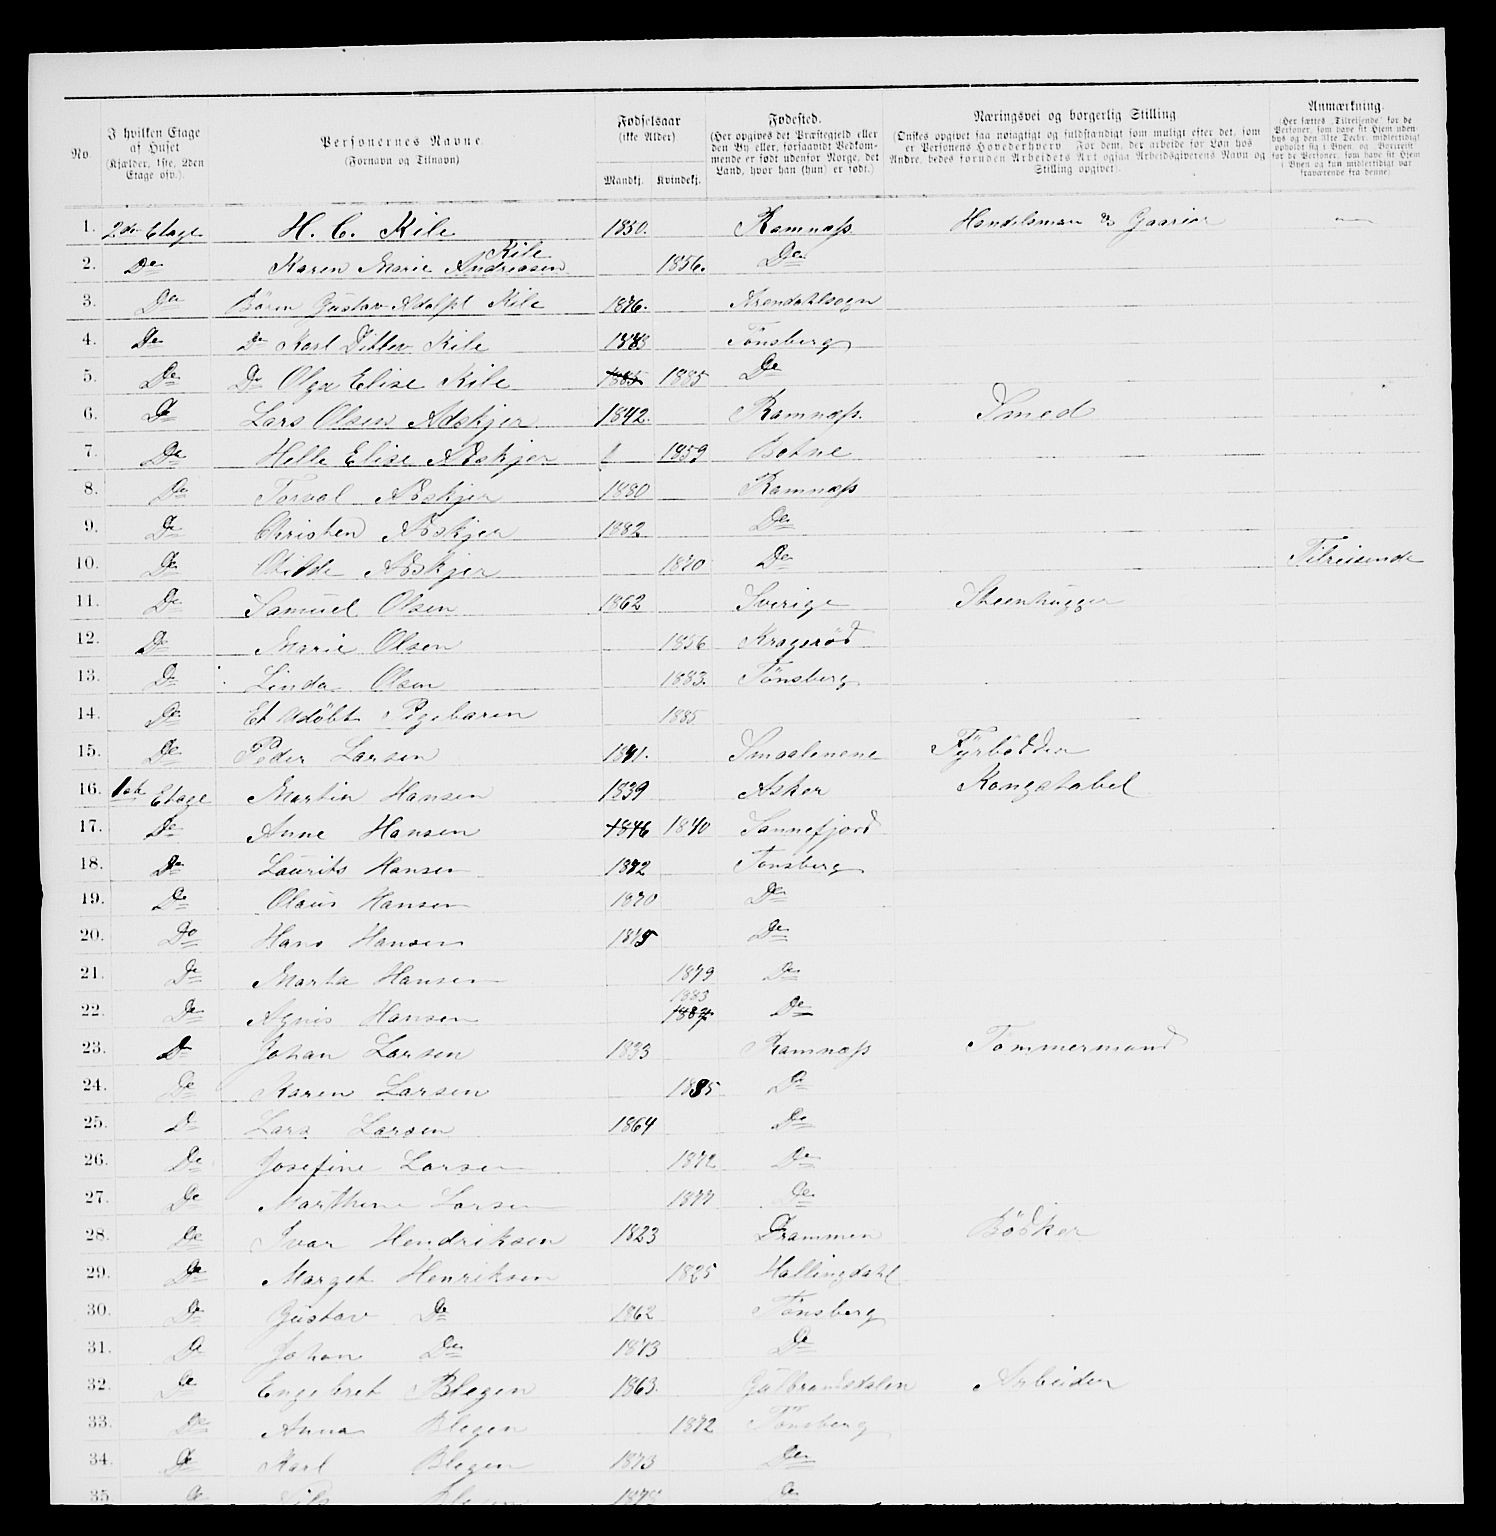 No.
I hvilken Etage af Huset (Kjælder, 1ste, 2den Etage osv.).
Personernes Navne. (Fornavn og Tilnavn)
Fødselsaar (ikke Alder) Mandkj. Kvindekj.
Fødested. (Her opgives det Præstegjeld eller den By eller, forsaavidt Vedkommende er født udenfor Norge, det Land, hvor han (hun) er født.)
Næringsvei og borgerlig Stilling (Ønskes opgivet saa nøiagtigt og fuldstændigt som muligt efter det, som er Personens Hovederhverv. For dem, der arbeide for Løn hos Andre, bedes foruden Arbeidets Art ogsaa Arbeidsgiverens Navn og Stilling opgivet).
Anmærkning. (Her sættes „Tilreisende" for de Personer, som have sit Hjem udenbys og den 31te Decbr. midlertidigt opholdt sig i Byen, og „Bortreist" for de Personer, som have sit Hjem i Byen og kun midlertidigt var fraværende fra denne).
1. 2den Etage H. C. Kile 1850. Ramnæss Handelsman & —
2. Do Karen Marie Andreasen Kile 1856. Do
3. Do Börn Gustav Adolph Kile 1876. Arendahlsogn
4. Do Do Karl Ditlev Kile 1883 Tönsberg
5. Do Do Olga Elise Kile 1885 1885 Do
6. Do Lars Olsen Adskjer 1842. Ramnæss. Smed
7. Do Helle Elise Adskjer 1859 Botne
8. Do Torval Adskjer 1880 Ramnæss
9. Do Christen Adskjer 1882 Do
10. Do Adskjer 1870 Do Tilreisende
11. Do Samuel Olsen 1862 Sverige Steenhugger
12. Do Marie Olsen 1856 Krageröd
13. Do Linda Olsen 1883. Tönsberg
14. Do Et Udöbt Pigebaren 1885
15. Do Peder Larsen 1841. Smaalenene Fyrbödder
16. 1ste Etage Martin Hansen 1839 Asker Kongstabel
17. Do Anne Hansen 1846 1840 Sannefjord
18. Do Laurits Hansen 1872 Tönsberg
19. Do Olaus Hansen 1870 Do
20. Do Hans Hansen 1875 Do
21. Do Marta Hansen 1879 Do
22. Do Agnis Hansen 1883 Do
23. Do Johan Larsen 1833 Ramnæss Tømmermand
24. Do Karen Larsen 1835 Do
25. Do Lars Larsen 1864 Do
26. Do Josefine Larsen 1872 Do
27. Do Marthine Larsen 1877 Do
28. Do Ivar Hendriksen 1823 Drammen Bödker
29. Do Marget Henriksen 1825 Hallingdahl
30. Do Gustav Do 1862 Tönsberg
31. Do Johan Do 1873 Do
32. Do Engebret Blegen 1863. Gulbrandsdalen Arbeider
33. Do Anna Blegen 1872 Tönsberg
34. Do Karl Blegen 1873 Do
35. Do